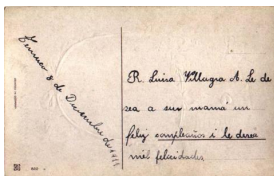 Temuco 8 de Diciembre de 1911
R. Luisa Villagra A. Le de
sea a sur mamá un
feliz compleaños i le desea
mil felicidades